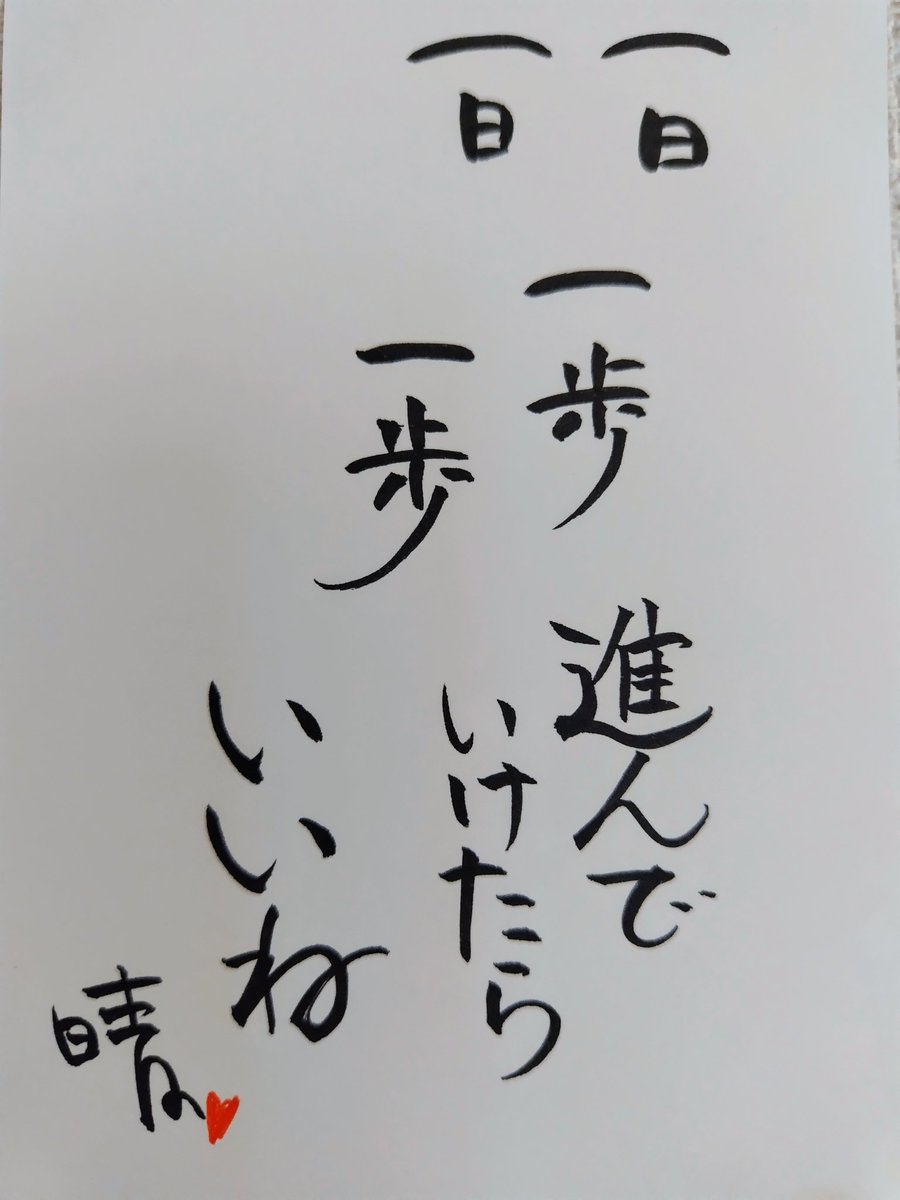 一日
一日
一歩
一歩
進んで
いけたら
いいね
晴